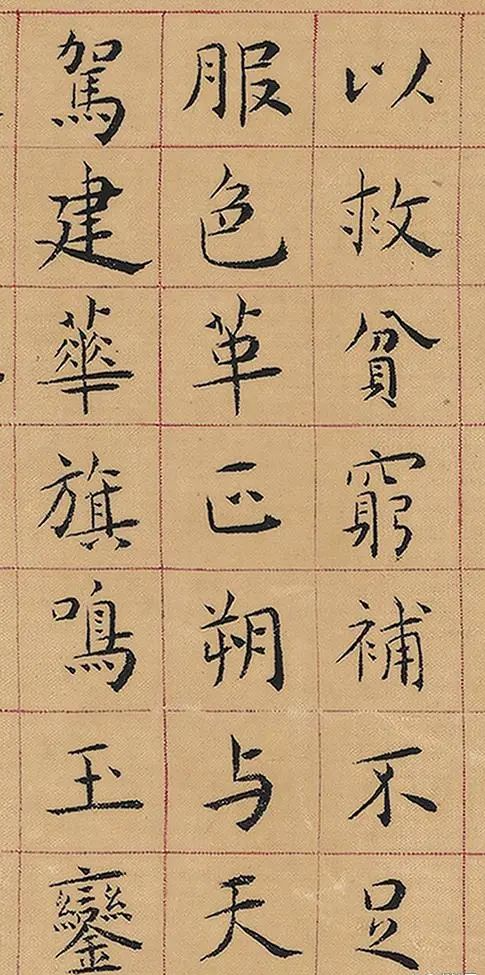 以救貧窮補不足
服色革正朔与天
駕建華旗鳴玉鑾